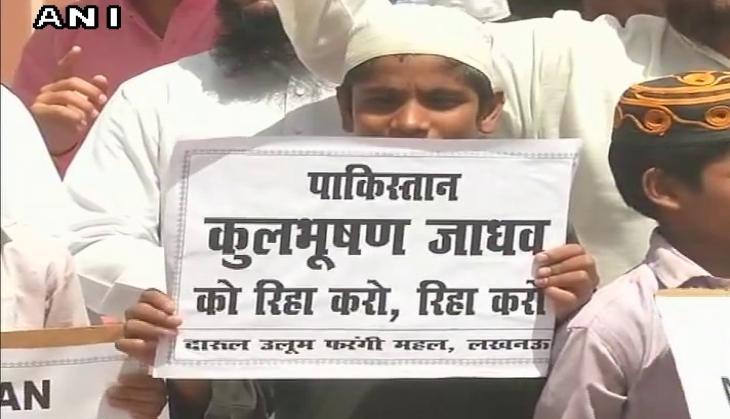 ANI
पाकिस्तान
कुलभूषण जाधव
को रिहा करो, रिहा करो
दारूल उलूम फरंगी महल, लखनऊ
AN